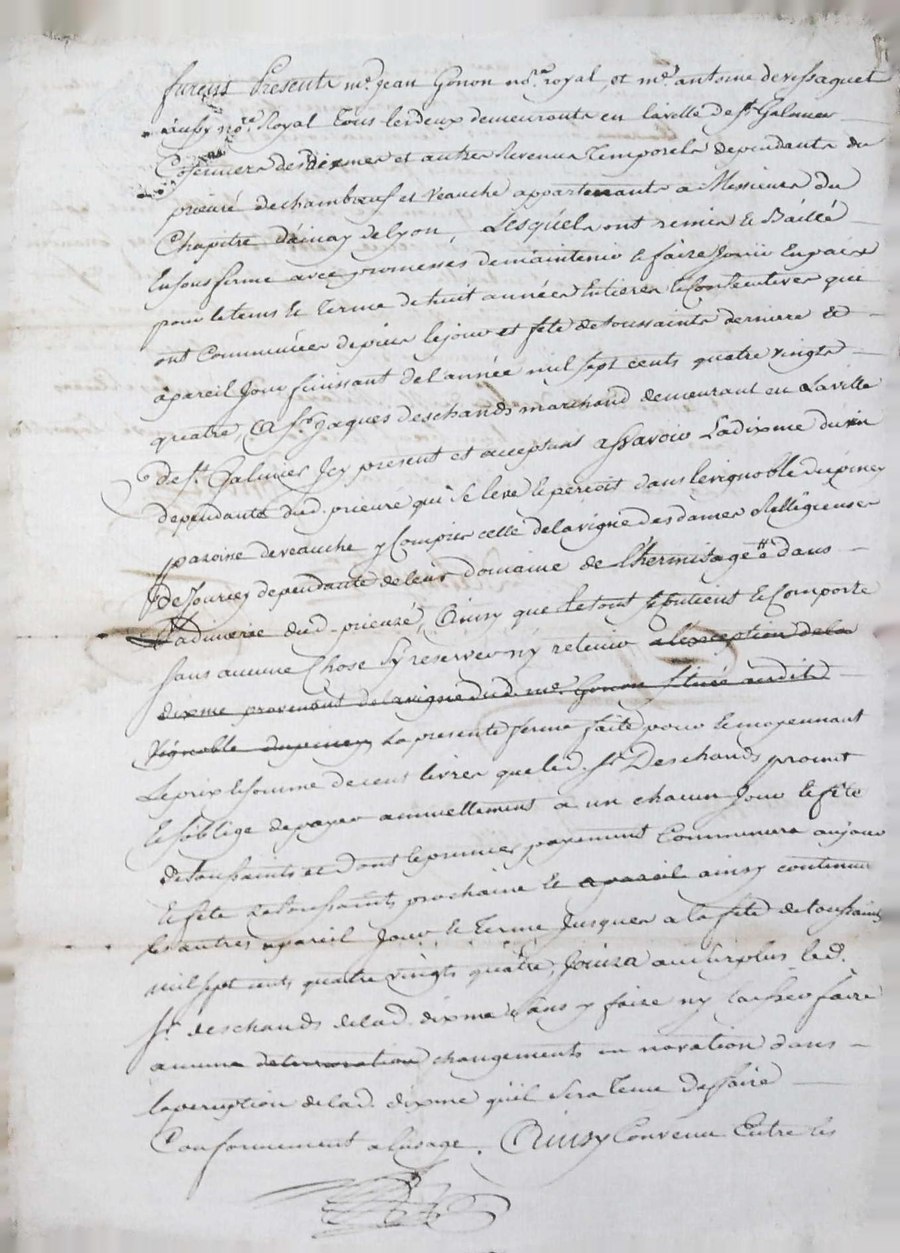 furent Presents me. jean Gonon nore. royal, et me. antoine devissaguet
aussy nore. Royal tous les deux demeurants en la ville de st. Galmier
Cofermiers des dixmes et autres Revenus temporels dependants du
prieuré de chambœuf et Veauche appartenants a Messieurs du
Chapitre d'ainay de Lyon, Lesquels ont remis et Baillé
En sousferme avec promesses de maintenir et faire Jouir En paix
pour le tems et terme de huit années Entieres et Consecutives qui
ont Commencées depuis le jour et fête de toussaints derniere &
a pareil Jour finissant de l'année mil sept cents quatre vingts
quatre, a sr. Jaques deschands marchand demeurant en La ville
de st. Galmier Icy present et acceptant assavoir La dixme du vin
dependante dud. prieuré qui se leve et perçoit dans le vignoble du piney
paroisse de veauche y Compris celle de la vigne des dames Relligieuses
de Jourcey dependante de leur domaine de l'hermitage dans
La dimerie dud. prieuré, Ainsy que le tout se Contient et Comporte
sans aucune Chose sy reserver ny retenir a l'exception de la
dixme provenant de la vigne dud. me. Gonon située audit
Vignoble du piney La presente ferme faite pour et moyennant
Le prix et somme de cent livres que led. sr. Deschands promet
et s'oblige de payer annuellement a un chacun Jour et fête
de toussaints et dont le premier payement Commencera au jour
et fête de toussaints prochaine et a pareil ainsy continuer
les autres a pareil Jour et terme Jusques a la fête de toussaints
mil sept cents quatre vingts quatre, Jouira au surplus led.
sr. deschands de lad. dixme sans y faire ny laisser faire
aucuns deterioration changements ou novation dans
la perception de lad. dixme qu'il sera tenu de faire
Conformement a l'usage. Ainsy Convenu Entre les